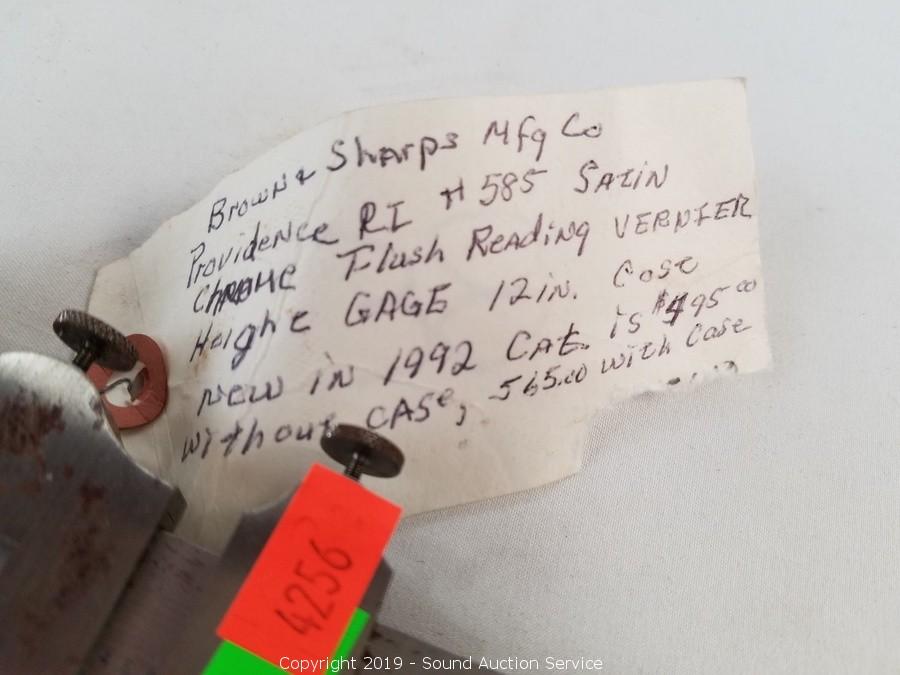 Brown & Sharps Mfg Co
Providence RI # 585 Satin
Chrome Flush Reading VERNIER
Height GAGE 12in. Cost
New in 1992 Cat. is $495.00
without CASE, 565.00 with Case
4256
Copyright 2019 - Sound Auction Service